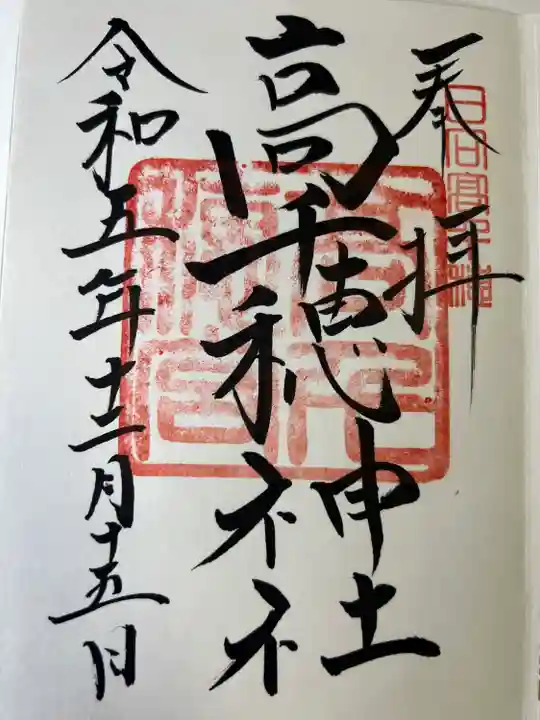 奉拝
日向高千穂
高千穂神社
令和五年十二月十五日